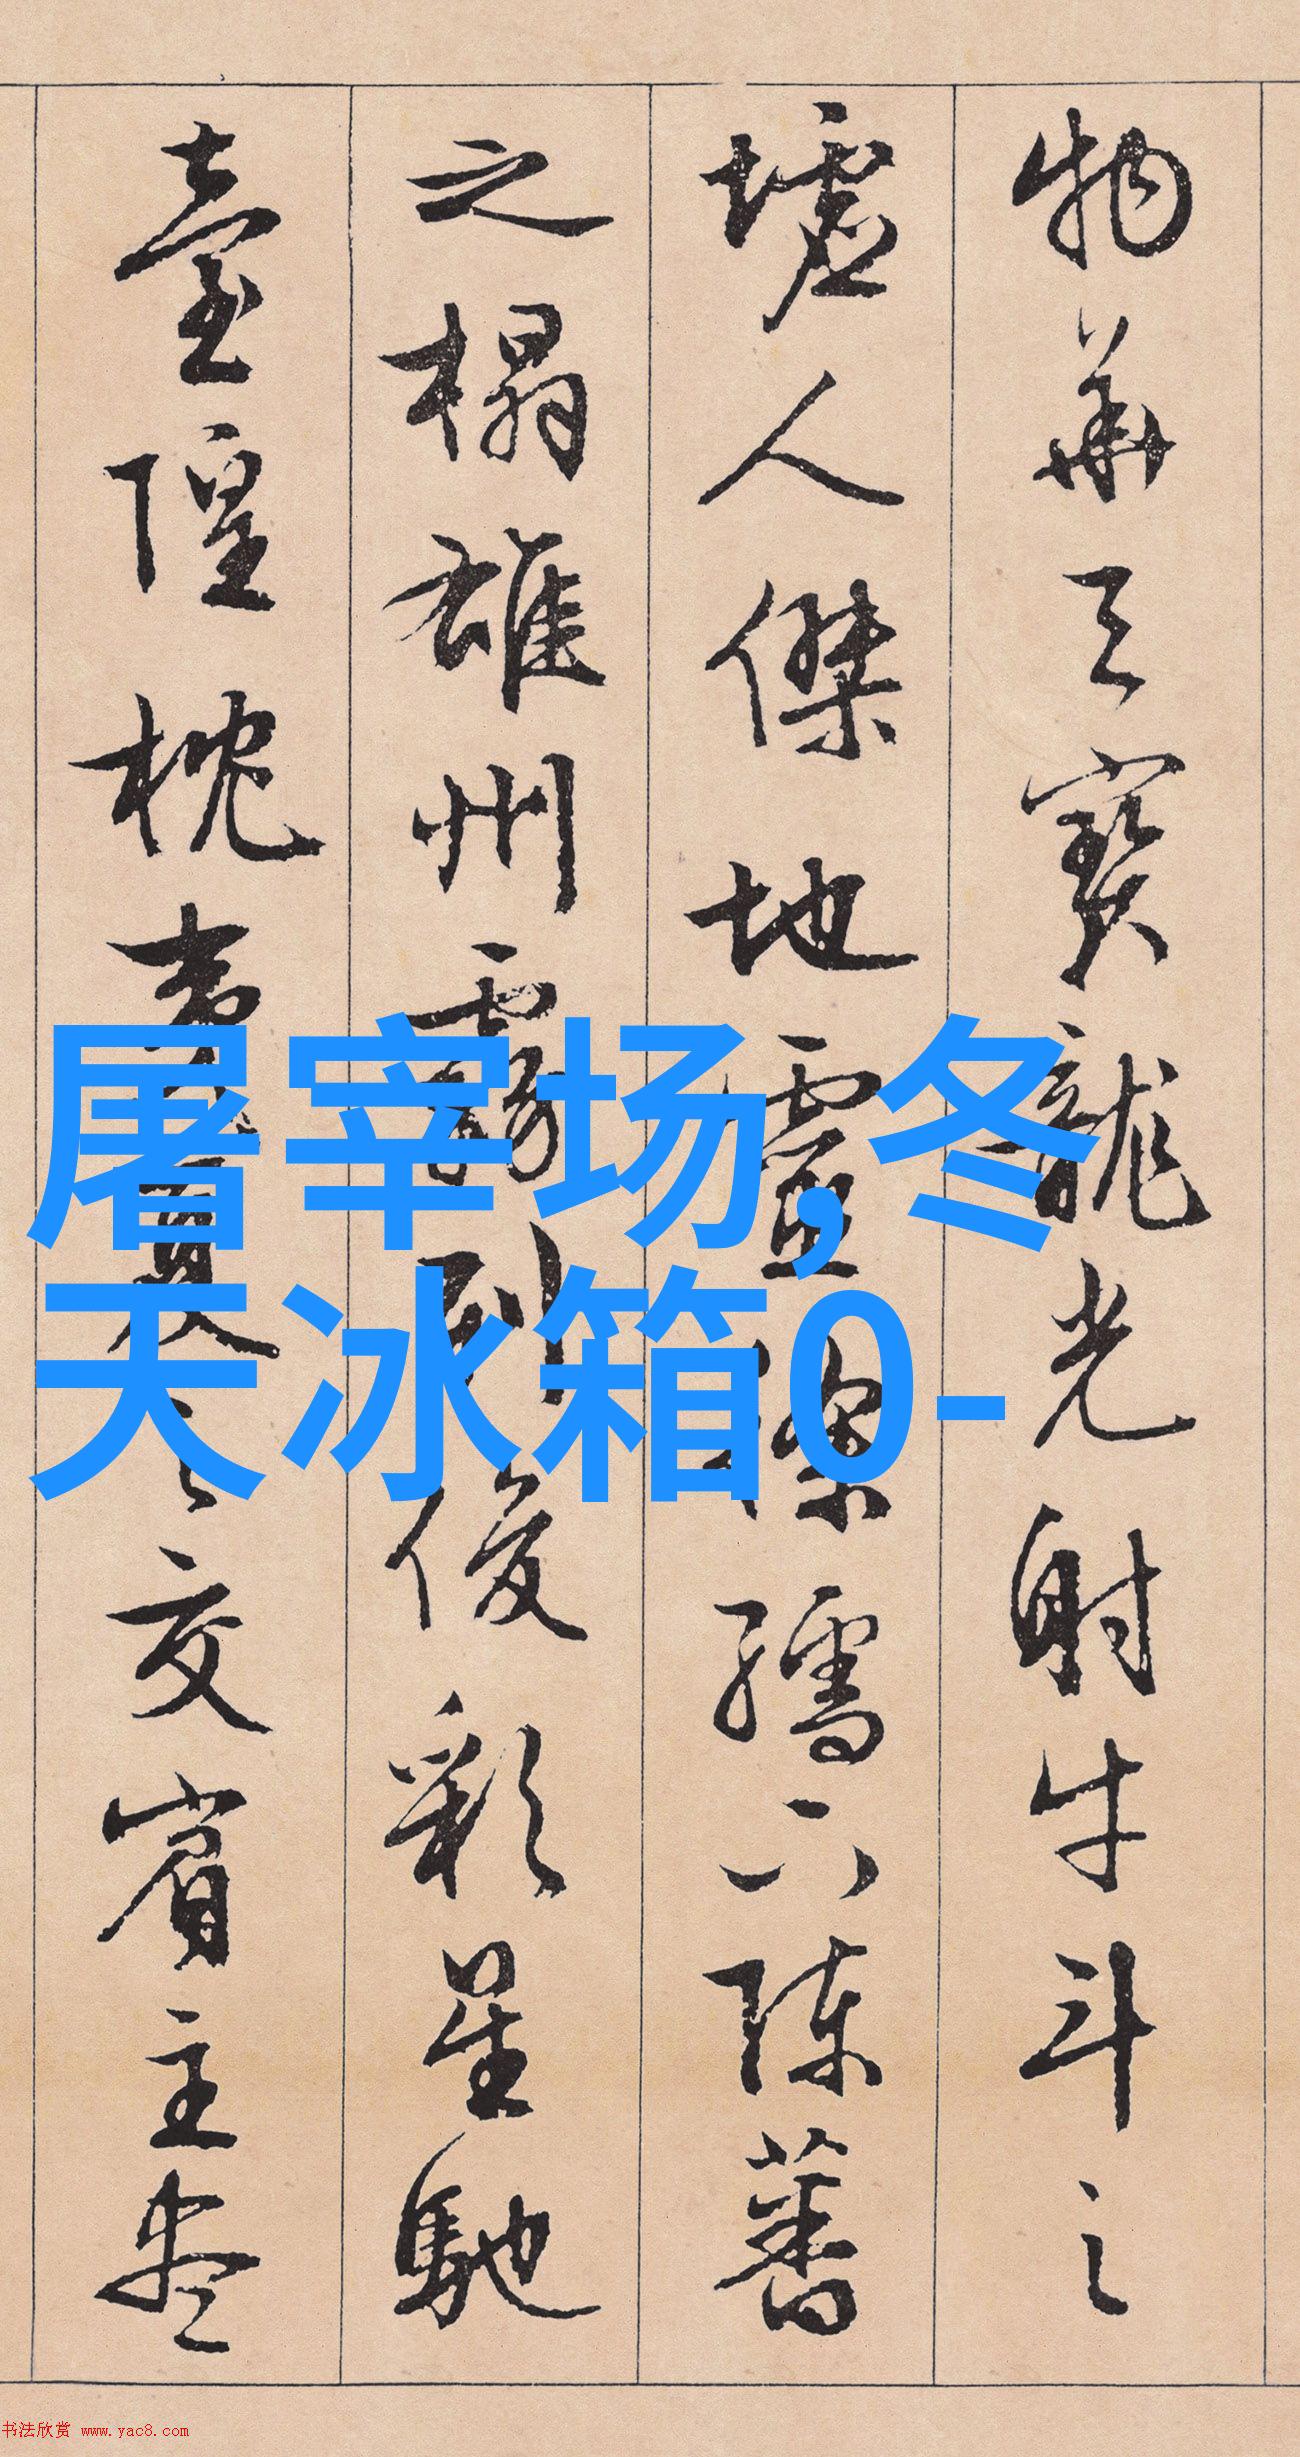 物华天寳龍光射牛斗之
墟人傑地靈徐孺下陳蕃
之榻雄州霧列俊彩星馳
臺隍枕夷夏之交賓主盡
屠宰场,冬
天冰箱0-
书法欣赏 www.yac8.com